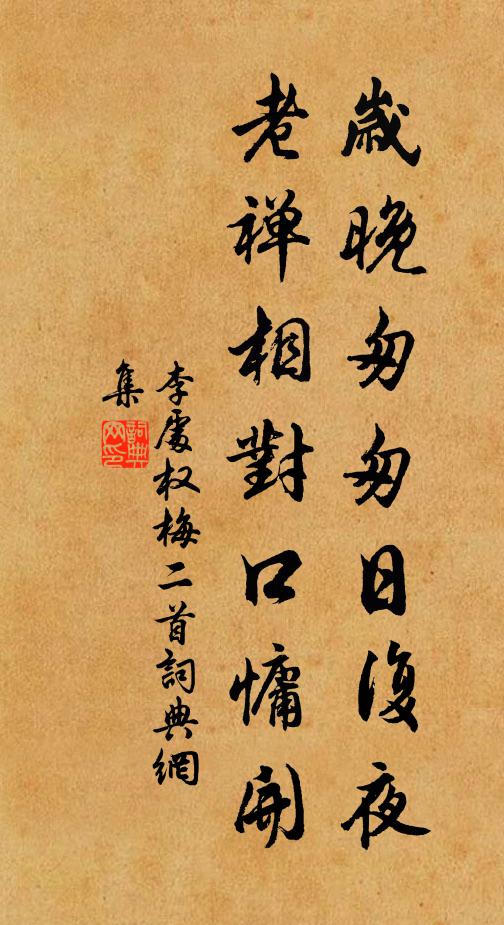 歲晚匆匆日復夜
老禅相對口慵開
李處权梅二首詞典網
集
詞典
网印